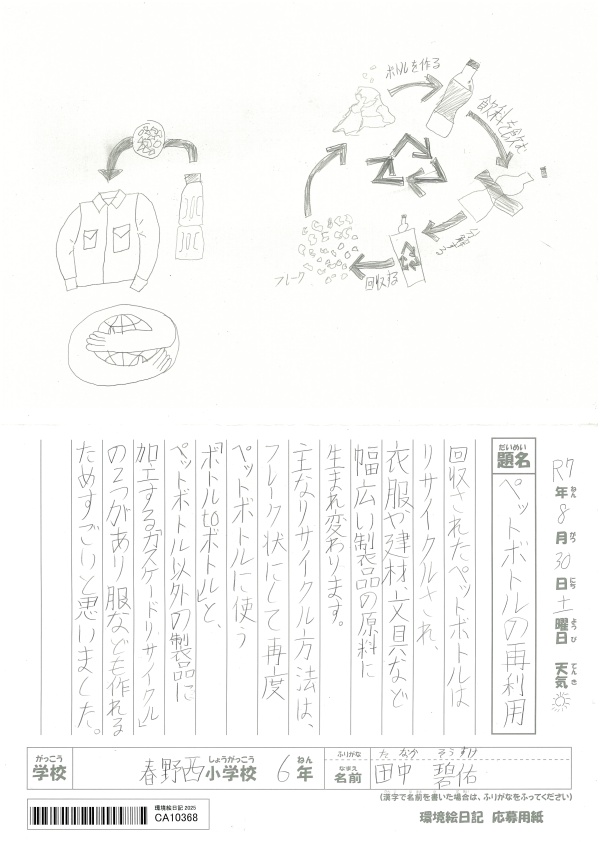 ボトルを作る
飲料を飲む
分解する
回収する
フレーク
R7年8月30日土曜日 天気
ねん がつ にち ようび てんき
だいめい
題名
ペットボトルの再利用
回収されたペットボトルは
リサイクルされ、
衣服や建材、文具など
幅広い製品の原料に
生まれ変わります。
主なリサイクル方法は、
フレーク状にして再度
ペットボトルに使う
「ボトルtoボトル」と、
ペットボトル以外の製品に
加工する「カスケードリサイクル」
の2つがあり服なども作れる
ためすごいと思いました。
がっこう しょうがっこう ねん
学校 春野西小学校 6年
ふりがな たなか そうすけ
なまえ
名前 田中 碧佑
(漢字で名前を書いた場合は、ふりがなをふってください)
環境絵日記 2025
CA10368
環境絵日記 応募用紙